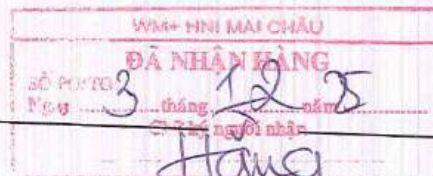 WM+ HNI MAI CHÂU
ĐÃ NHẬN HÀNG
SỐ PO/TO
Ngày 3 tháng 12 năm 25
Chữ ký người nhận
Hằng